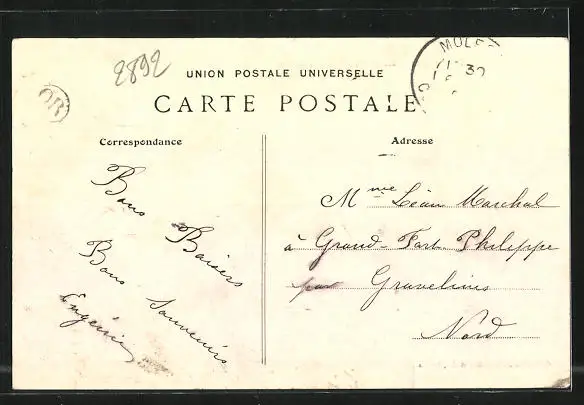 2892
OR
MOLE
30
UNION POSTALE UNIVERSELLE
CARTE POSTALE
Correspondance
Adresse
Bons Baisers
Bons Souvenirs
Eugénie
Mme Léon Marechal
à Grand-Fort Philippe
par Gravelines
Nord